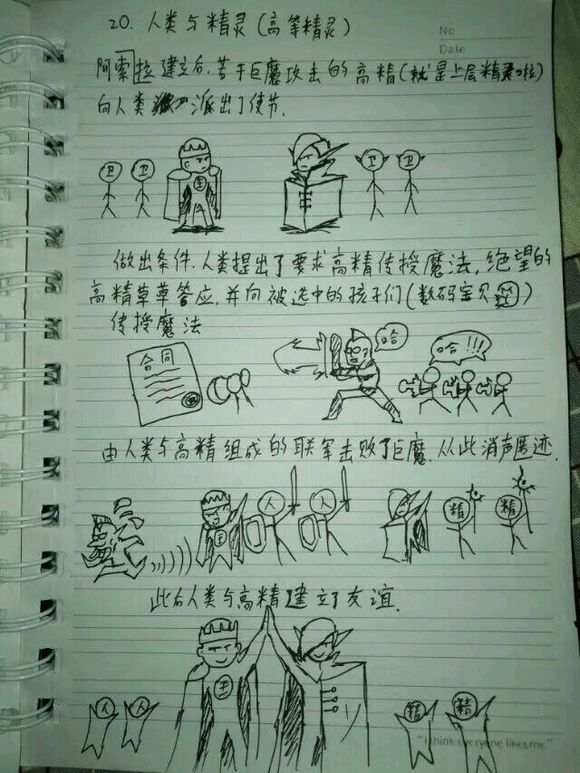 20. 人类与精灵(高等精灵)
No
Date
阿索拉建立后,苦于巨魔攻击的高精(就是上层精灵啦)
向人类派出了使节.
卫 卫 王 卫 卫
做出条件.人类提出了要求高精传授魔法,绝望的
高精草草答应,并向被选中的孩子们(数码宝贝)
传授魔法
合同
哈
哈!!!
由人类与高精组成的联军击败了巨魔,从此消声匿迹.
王 人 人 精 精
此后人类与高精建立了友谊.
人 人 王 精 精
"I think everyone likes me"